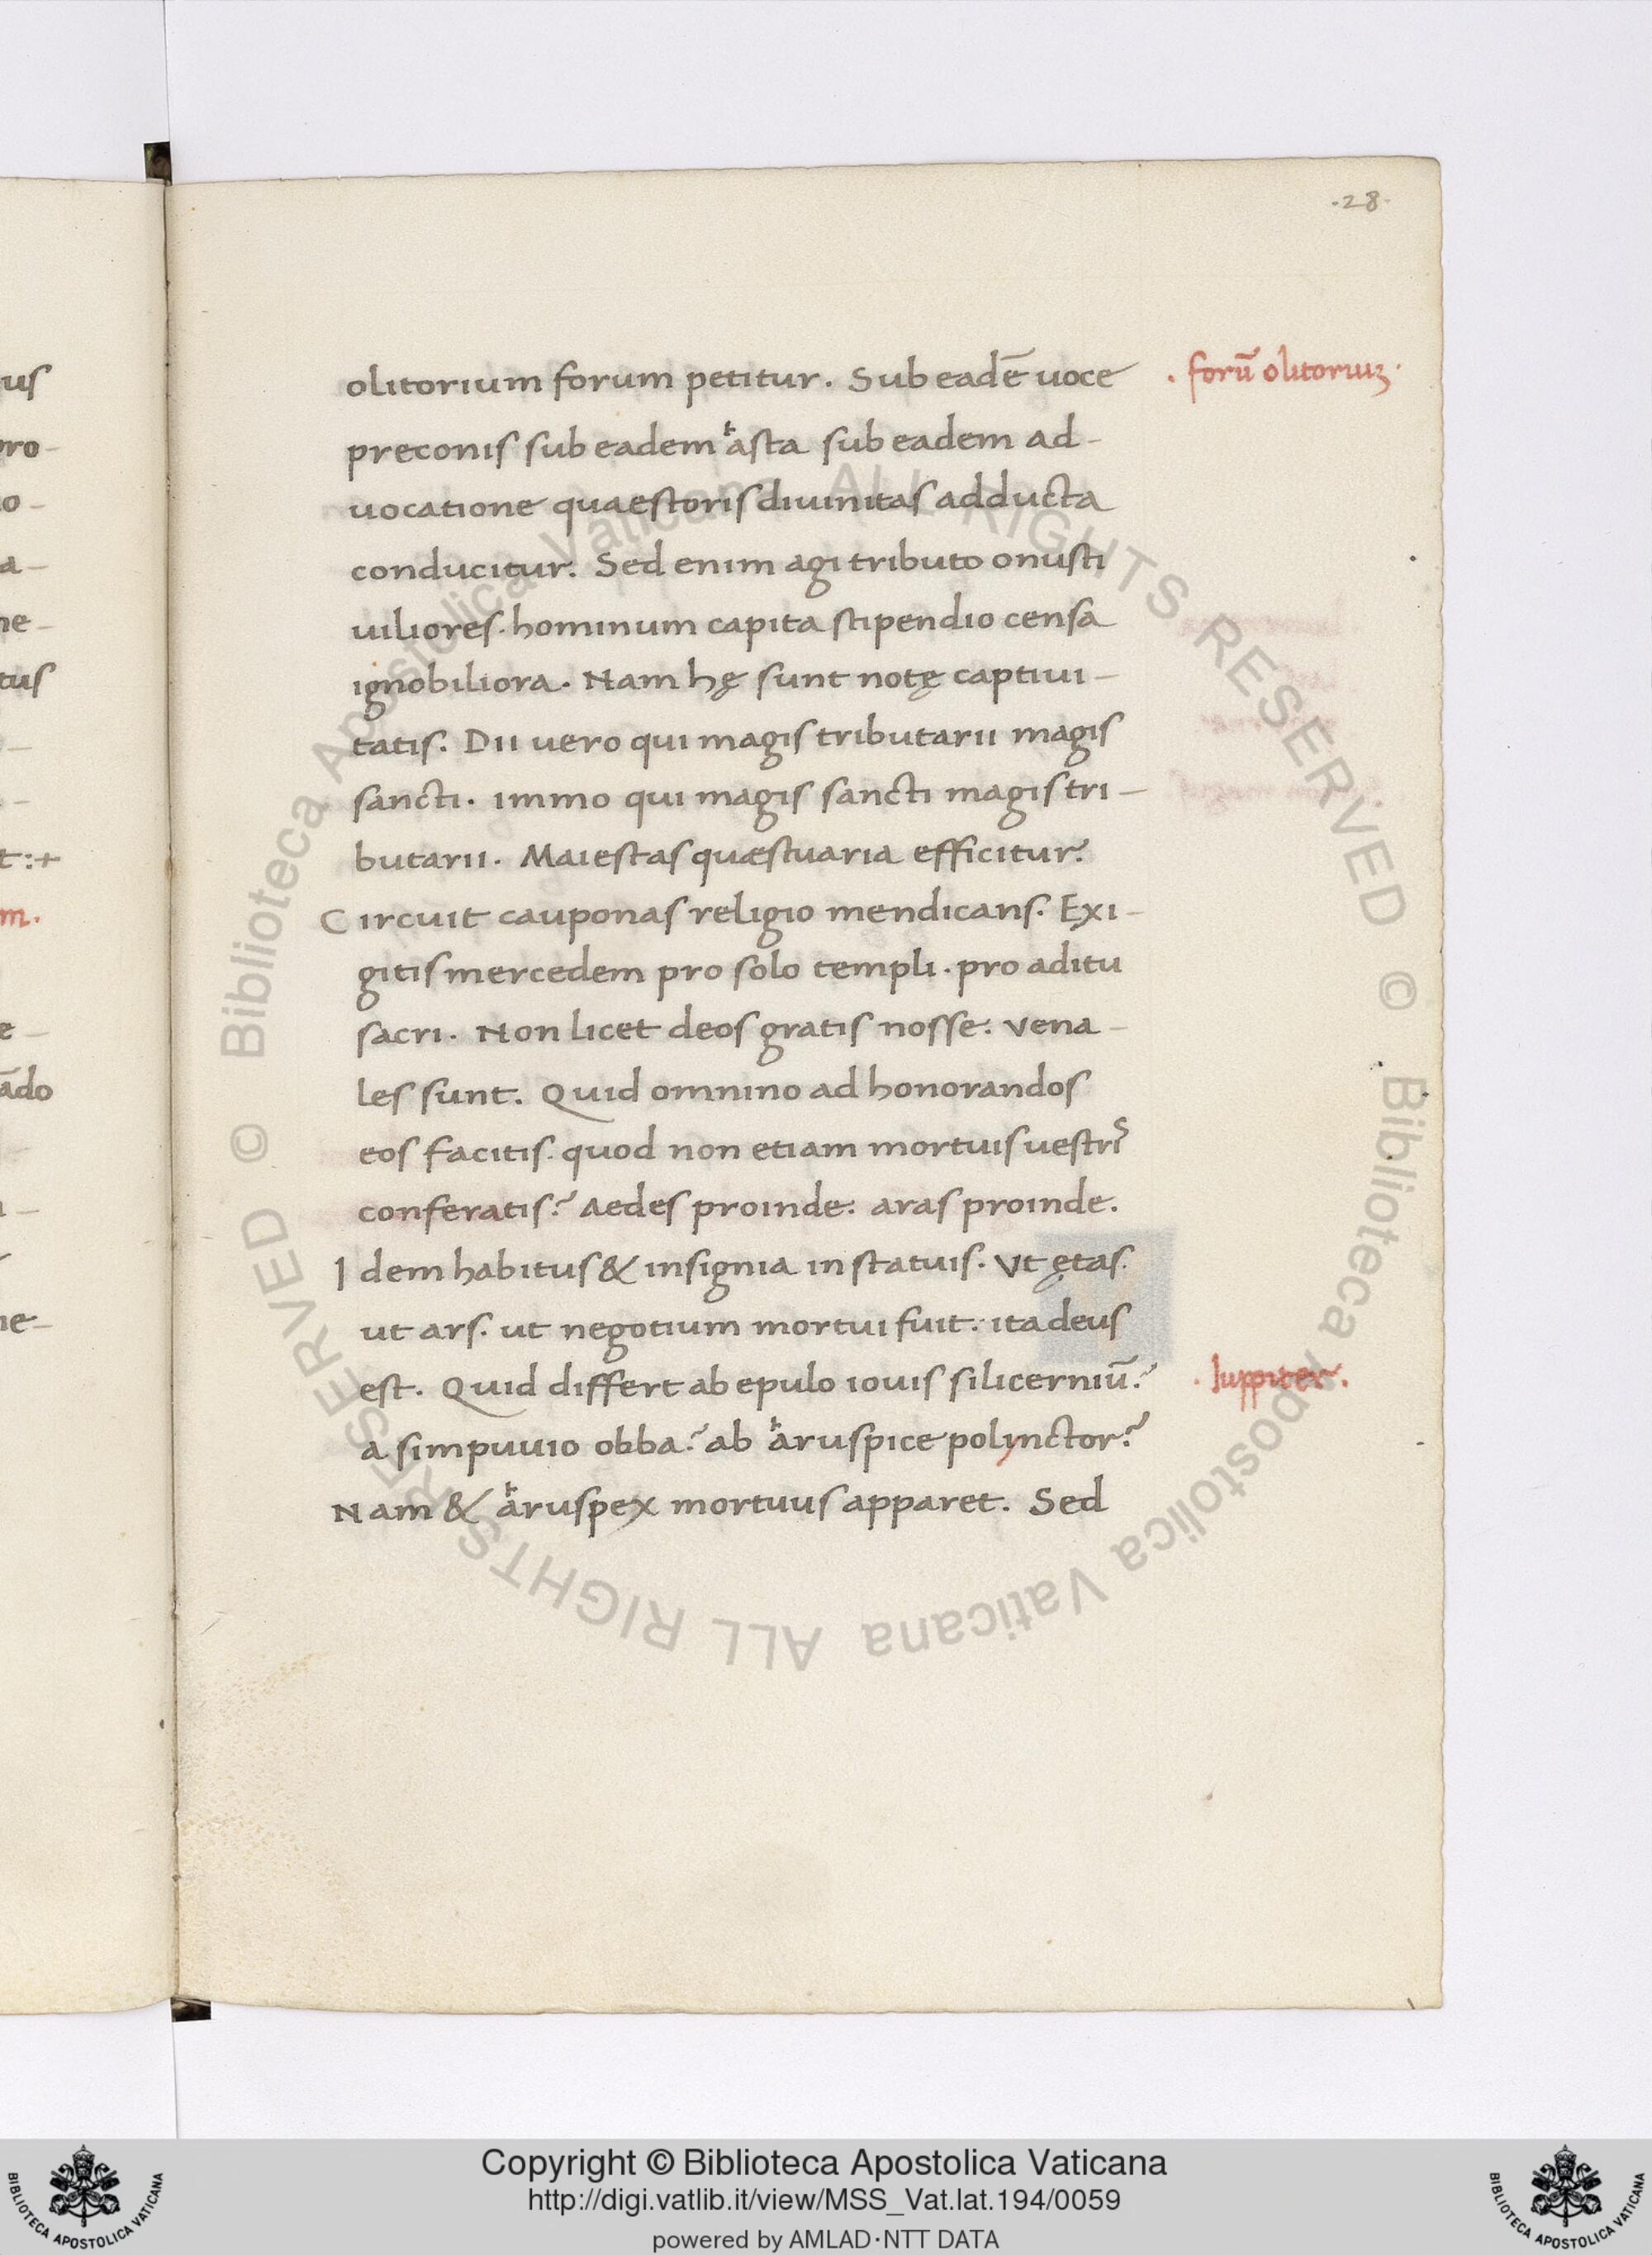 .28.
olitorium forum petitur. Sub eadē uoce
. forū olitoriuz.
preconis sub eadem ⱶasta sub eadem ad-
uocatione quaestoris diuinitas adducta
conducitur. Sed enim agi tributo onusti
uiliores. hominum capita stipendio censa
ignobiliora. Nam hę sunt notę captiui-
tatis. Dii uero qui magis tributarii magis
sancti. immo qui magis sancti magis tri-
butarii. Maiestas quæstuaria efficitur.
Circuit cauponas religio mendicans. Exi-
gitis mercedem pro solo templi. pro aditu
sacri. Non licet deos gratis nosse: vena-
les sunt. Quid omnino ad honorandos
eos facitis. quod non etiam mortuis uestris
conferatis? Aedes proinde: aras proinde.
Idem habitus & insignia in statuis. Vt ętas.
ut ars. ut negotium mortui fuit: ita deus
est. Quid differt ab epulo iouis silicerniū?
. Iuppiter.
a simpuuio obba? ab ⱶaruspice polinctor?
Nam & ⱶaruspex mortuus apparet. Sed
us
pro-
o-
a-
ne-
tus
-
-
t:+
m.
e-
ādo
-
ne-
© Biblioteca Apostolica Vaticana ALL RIGHTS RESERVED © Biblioteca Apostolica Vaticana ALL RIGHTS RESERVED
Copyright © Biblioteca Apostolica Vaticana
http://digi.vatlib.it/view/MSS_Vat.lat.194/0059
powered by AMLAD·NTT DATA
BIBLIOTECA APOSTOLICA VATICANA
BIBLIOTECA APOSTOLICA VATICANA